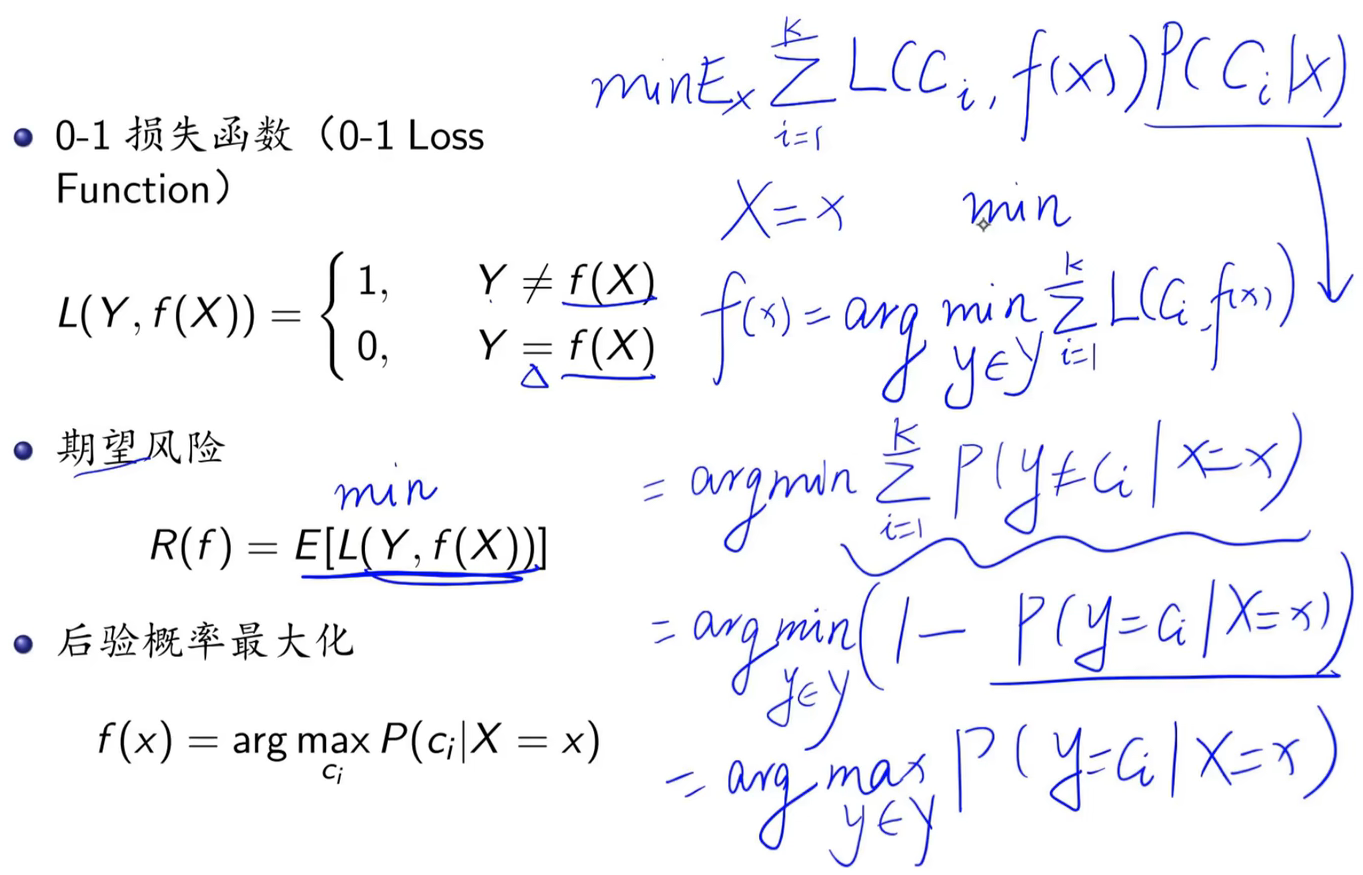 • 0-1 损失函数（0-1 Loss
Function）
L(Y, f(X)) = { 1, Y ≠ f(X)
0, Y = f(X)
Δ
• 期望风险
min
R(f) = E[L(Y, f(X))]
• 后验概率最大化
f(x) = arg max P(cᵢ|X = x)
cᵢ
min Eₓ ∑ᵢ₌₁ᴷ L(Cᵢ, f(x)) P(Cᵢ|X)
X=x min
f(x) = arg min ∑ᵢ₌₁ᴷ L(Cᵢ, f(x))
y∈Y
= arg min ∑ᵢ₌₁ᴷ P(y≠Cᵢ | X=x)
= arg min (1 − P(y=Cᵢ | X=x))
y∈Y
= arg max P(y=Cᵢ | X=x)
y∈Y